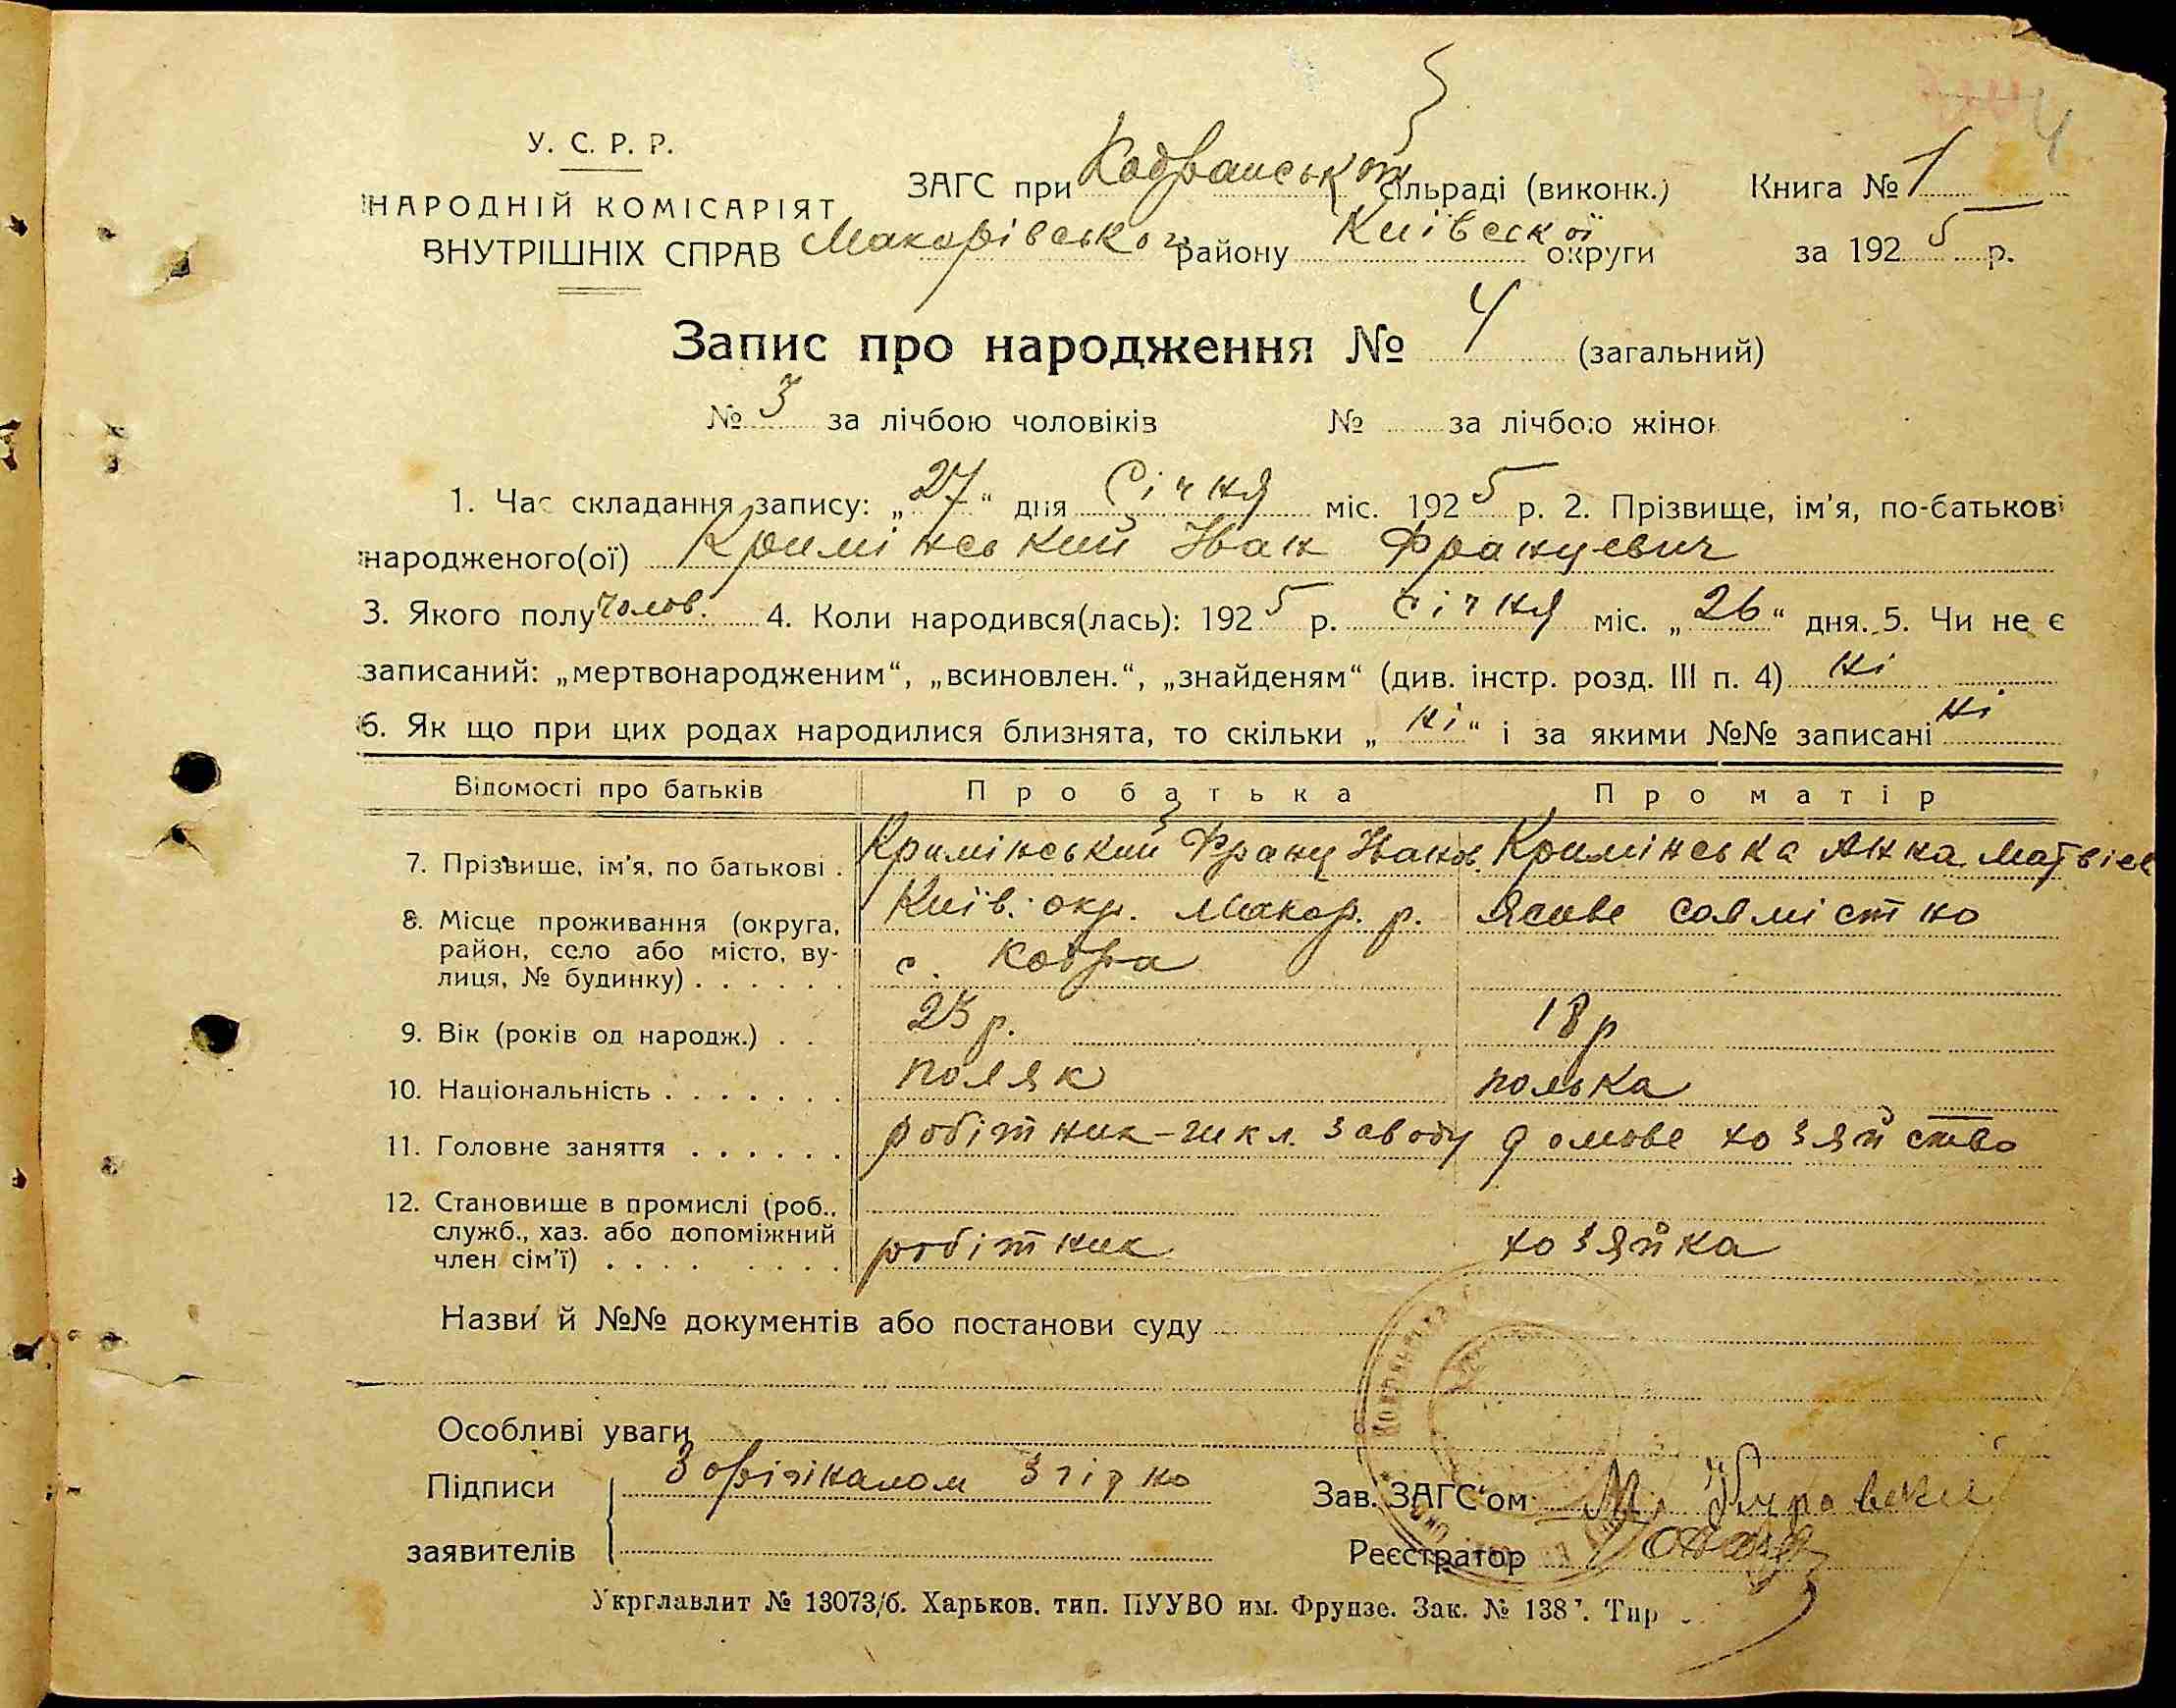 У. С. Р. Р.
НАРОДНІЙ КОМІСАРІЯТ
ВНУТРІШНІХ СПРАВ
ЗАГС при Кодранській сільраді (виконк.) Книга № 1
Макарівського району Київської округи за 1925 р.
Запис про народження № 4 (загальний)
№ 3 за лічбою чоловіків № за лічбою жінок
1. Час складання запису: „27“ дня Січня міс. 1925 р. 2. Прізвище, ім'я, по-батькові
народженого(ої) Кримінський Іван Францевич
3. Якого полу чолов. 4. Коли народився(лась): 1925 р. Січня міс. „26“ дня. 5. Чи не є
записаний: „мертвонародженим“, „всиновлен.“, „знайденям“ (див. інстр. розд. III п. 4) ні
6. Як що при цих родах народилися близнята, то скільки „ні“ і за якими №№ записані ні
Відомості про батьків Про батька Про матір
7. Прізвище, ім'я, по батькові . Кримінський Франц Іванов. Кримінська Анна Матвієв
8. Місце проживання (округа, Київ. окр. Макар. р. совмістно
район, село або місто, ву- с. Кодра
лиця, № будинку) . . . . . .
9. Вік (років од народж.) . . 25 р. 18 р
10. Національність . . . . . . . поляк полька
11. Головне заняття . . . . . . робітник-шкл. заводу домове хозяйство
12. Становище в промислі (роб.,
служб., хаз. або допоміжний
член сім'ї) . . . . . . . . робітник хозяйка
Назви й №№ документів або постанови суду
Особливі уваги
Підписи З орігіналом згідно Зав. ЗАГС'ом М.
заявителів Реєстратор
Укрглавлит № 13073/б. Харьков. тип. ПУУВО им. Фрунзе. Зак. № 138 Тир